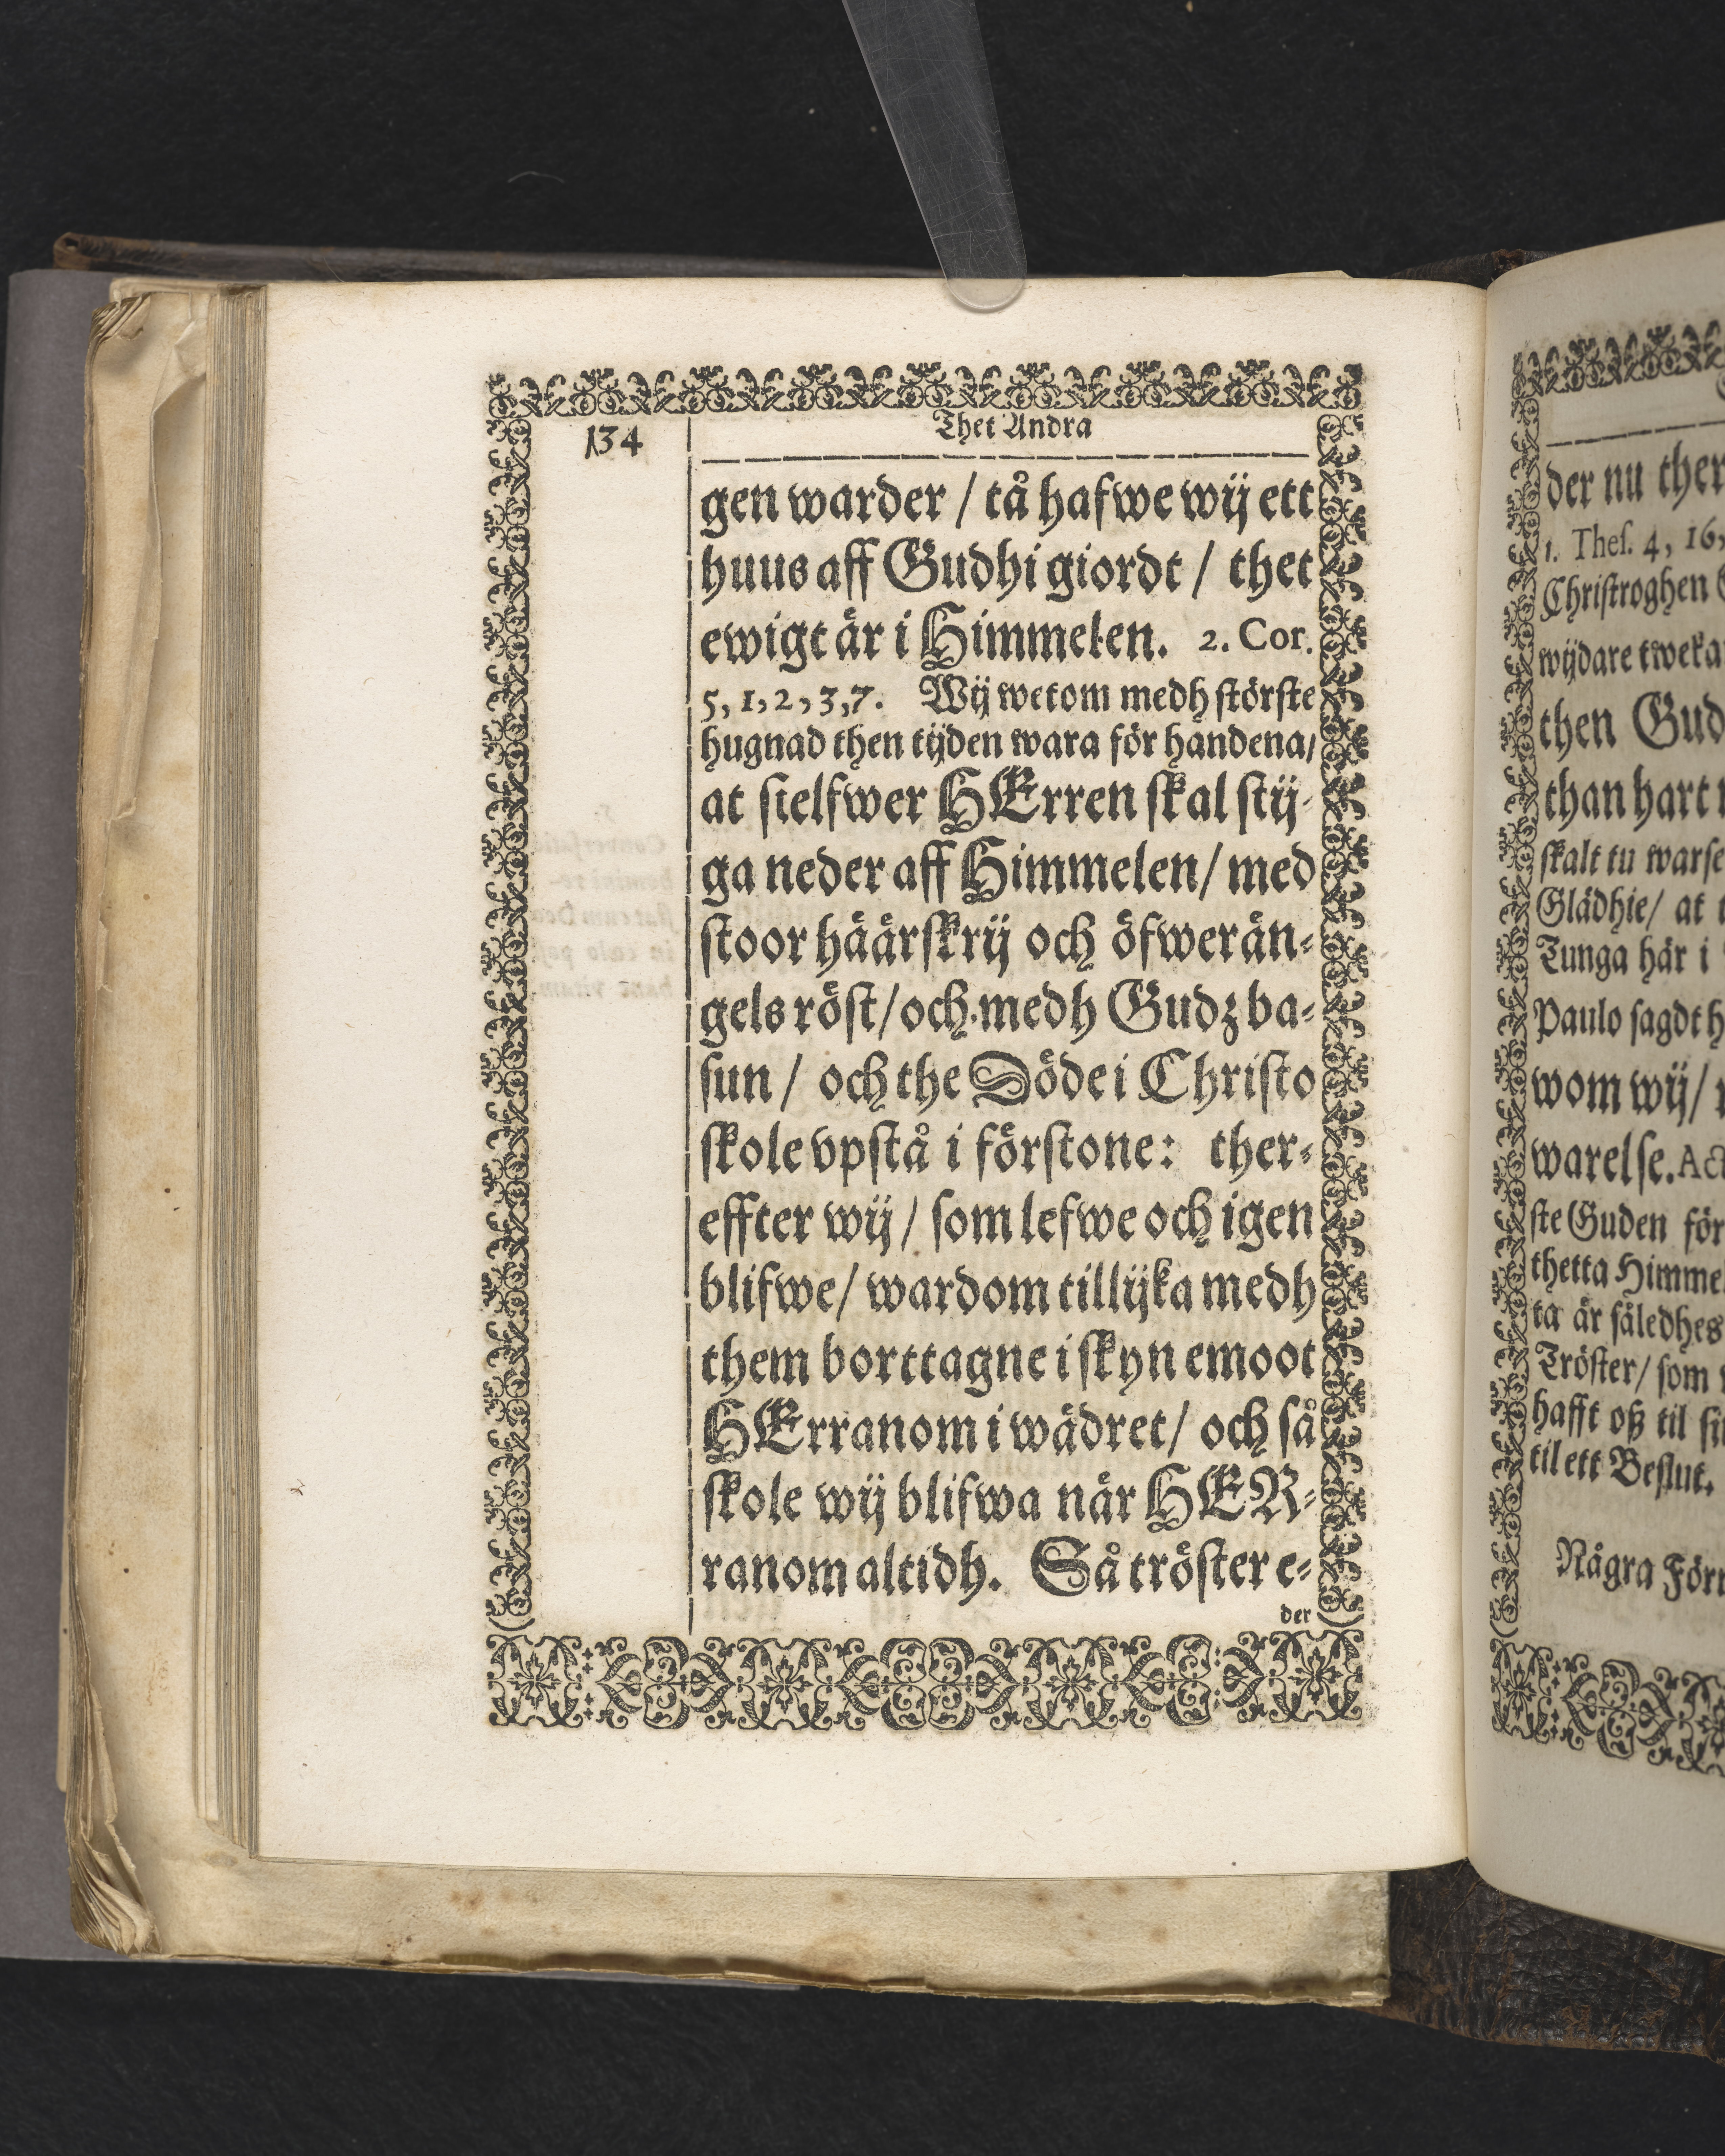 134
Thet Andra
gen warder / tå hafwe wij ett
huus aff Gudhi giordt / thet
ewigt är i Himmelen. 2. Cor.
5, 1, 2, 3, 7. Wij wetom medh störste
hugnad then tijden wara för handena/
at sielfwer HErren skal stij-
ga neder aff Himmelen/ med
stoor häärskrij och öfwerän-
gels röst/ och medh Gudz ba-
sun / och the Döde i Christo
skole vpstå i förstone: ther-
effter wij / som lefwe och igen
blifwe/ wardom tillijka medh
them borttagne i skyn emoot
HErranom i wädret/ och så
skole wij blifwa när HER-
ranom altidh. Så tröster e-
der
der nu ther
1. Thes. 4, 16,
Christroghen
wijdare tweka
then Gud
than hart
skalt tu warse
Glädhie/ at
Tunga här i
Paulo sagdt h
wom wij/
warelse. Act
ste Guden för
thetta Himme
ta är således
Tröster/ som
hafft oß til si
til ett Beslut.
Några Förr